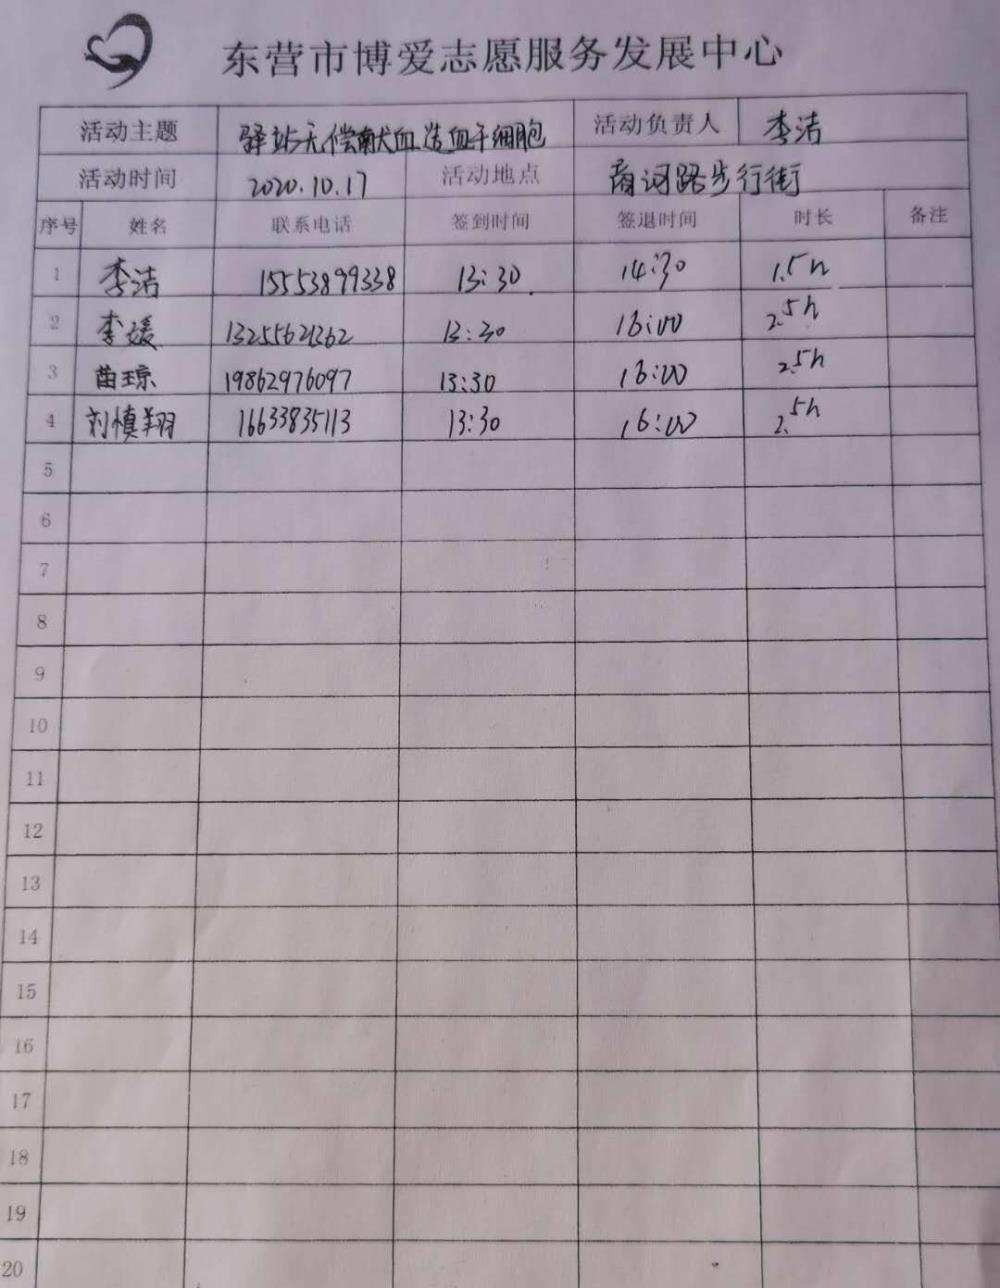 东营市博爱志愿服务发展中心
活动主题 驿站无偿献血造血干细胞 活动负责人 李洁
活动时间 2020.10.17 活动地点 商河路步行街
序号 姓名 联系电话 签到时间 签退时间 时长 备注
1 李洁 15553899338 13:30 14:30 1.5h
2 李媛 13:30 16:00 2.5h
3 苗琼 19862976097 13:30 16:00 2.5h
4 刘慎翔 16633835113 13:30 16:00 2.5h
5
6
7
8
9
10
11
12
13
14
15
16
17
18
19
20